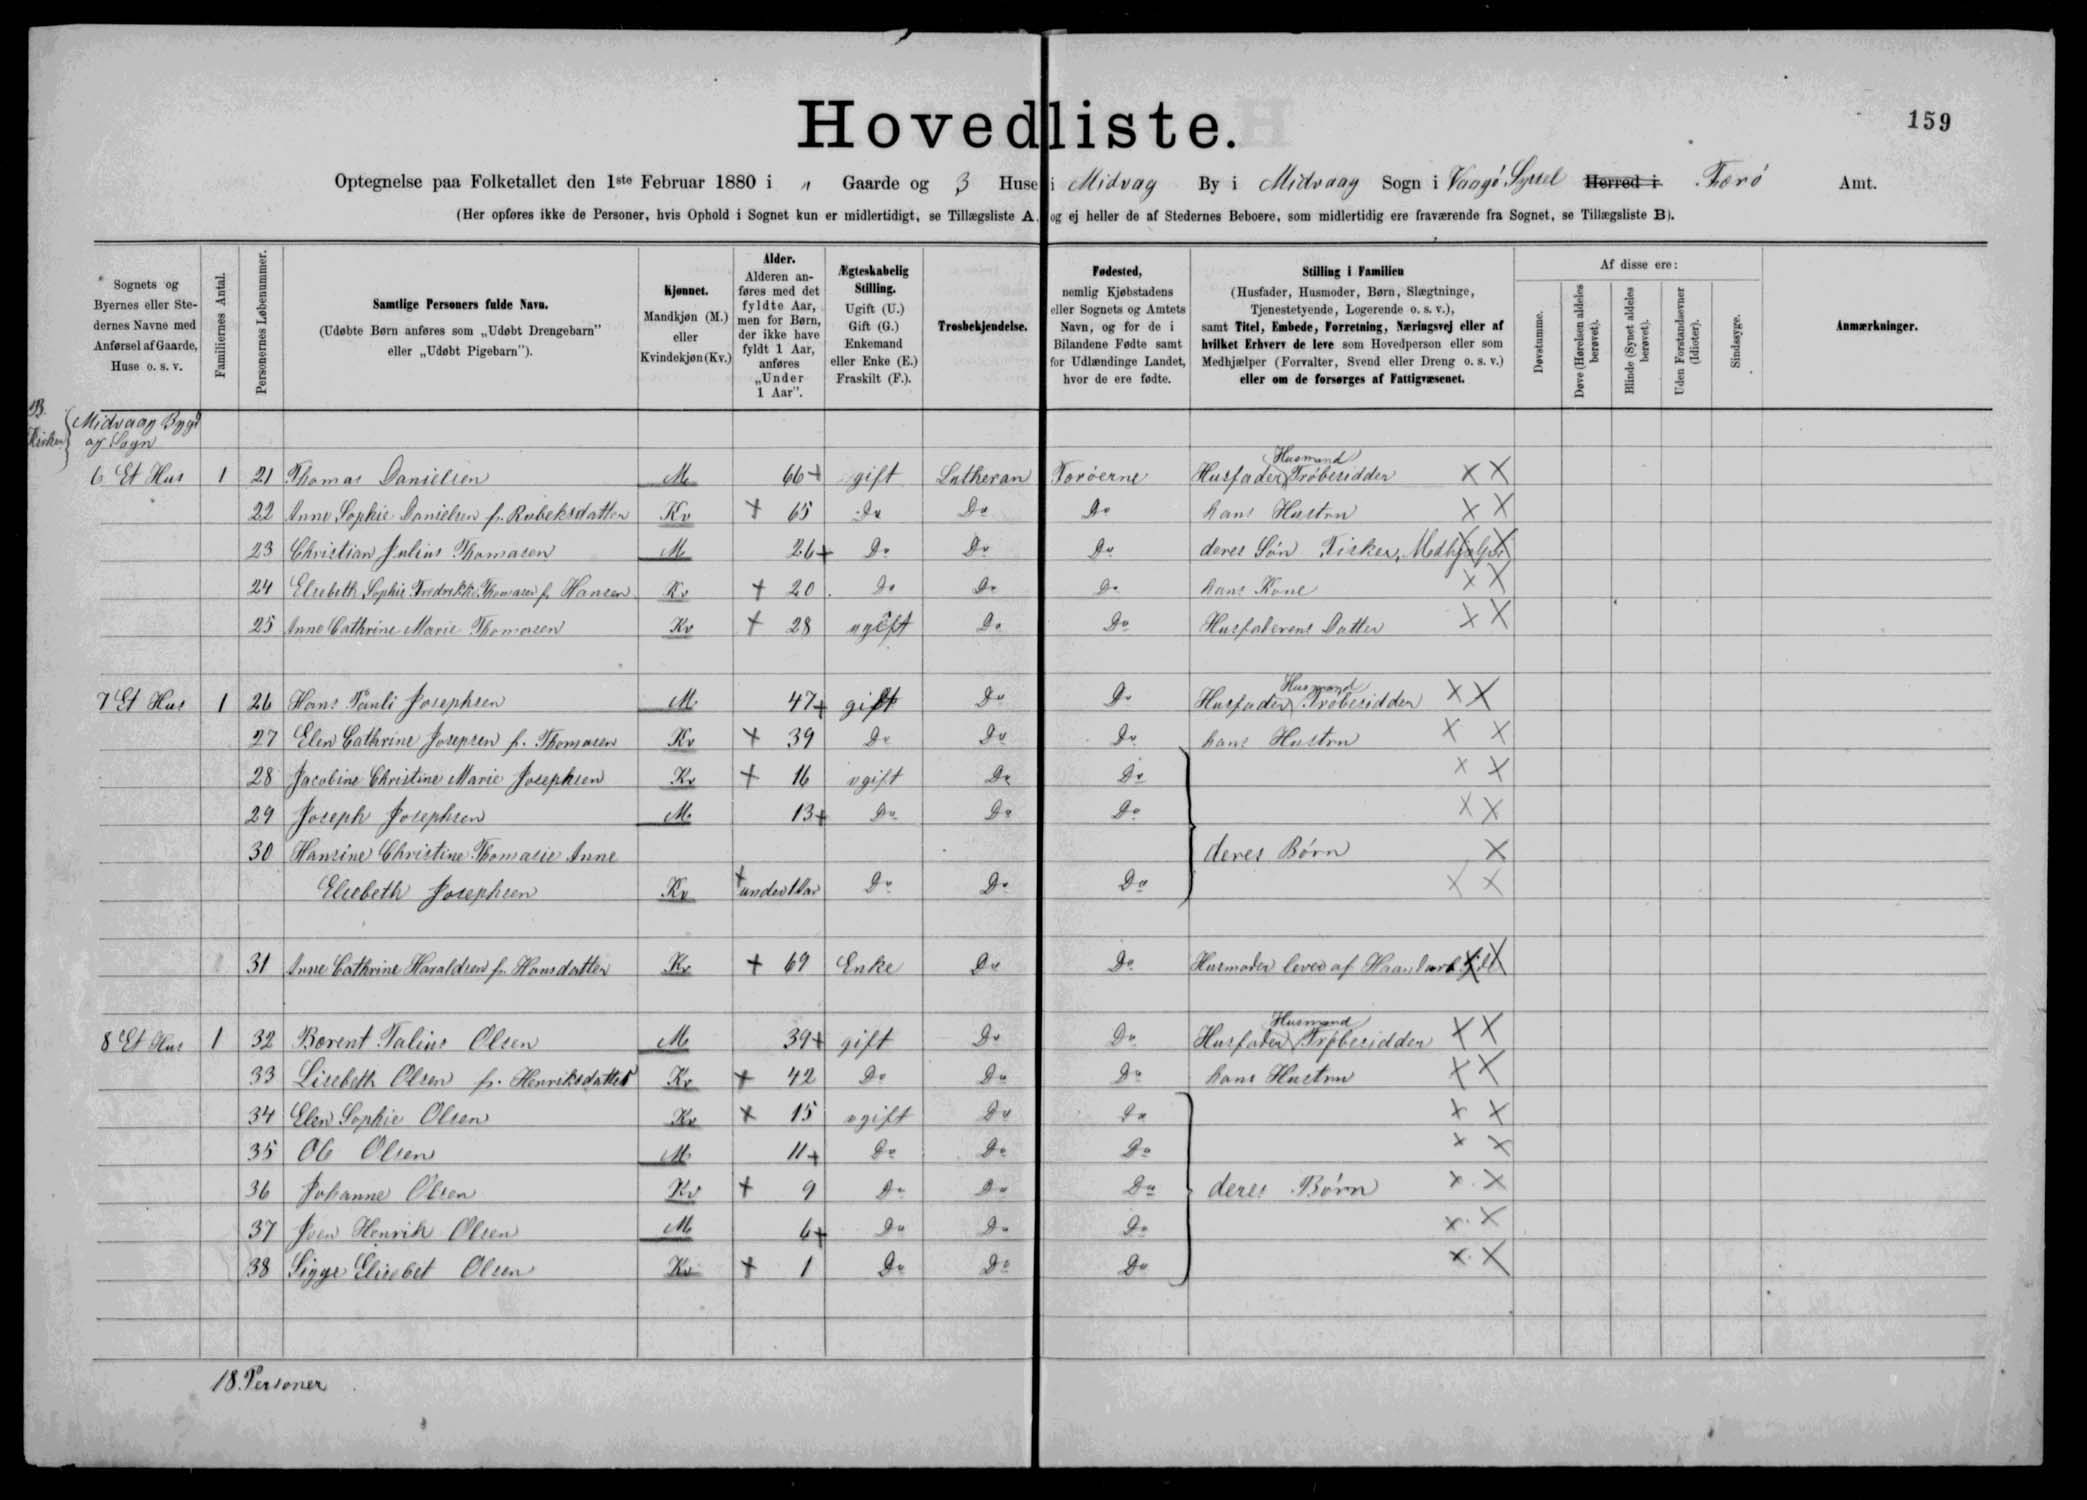 159
Hovedliste.
Optegnelse paa Folketallet den 1ste Februar 1880 i " Gaarde og 3 Huse i Midvag By i Midvaag Sogn i Vaagø Syssel Herred i Færø Amt.
(Her opføres ikke de Personer, hvis Ophold i Sognet kun er midlertidigt, se Tillægsliste A. og ej heller de af Stedernes Beboere, som midlertidig ere fraværende fra Sognet, se Tillægsliste B).
Sognets og Byernes eller Stedernes Navne med Anførsel af Gaarde, Huse o. s. v.
Familiernes Antal.
Personernes Løbenummer.
Samtlige Personers fulde Navn.
(Udøbte Børn anføres som „Udøbt Drengebarn" eller „Udøbt Pigebarn").
Kjønnet.
Mandkjøn (M.) eller Kvindekjøn (Kv.)
Alder.
Alderen anføres med det fyldte Aar, men for Børn, der ikke have fyldt 1 Aar, anføres „Under 1 Aar".
Ægteskabelig Stilling.
Ugift (U.) Gift (G.) Enkemand eller Enke (E.) Fraskilt (F.).
Trosbekjendelse.
Fødested,
nemlig Kjøbstadens eller Sognets og Amtets Navn, og for de i Bilandene Fødte samt for Udlændinge Landet, hvor de ere fødte.
Stilling i Familien
(Husfader, Husmoder, Børn, Slægtninge, Tjenestetyende, Logerende o. s. v.),
samt Titel, Embede, Forretning, Næringsvej eller af hvilket Erhverv de leve som Hovedperson eller som Medhjælper (Forvalter, Svend eller Dreng o. s. v.) eller om de forsørges af Fattigvæsenet.
Af disse ere:
Døvstumme.
Døve (Hørelsen aldeles berøvet).
Blinde (Synet aldeles berøvet).
Uden Forstandsevner (Idioter).
Sindssyge.
Anmærkninger.
Midvaag Bygd
og Sogn
Husmand
6 Et Hus 1 21 Thomas Danielsen M 66 + gift Lutheran Forøerne Husfader Frøbesidder X X
22 Anne Sophie Danielsen f. Rubeksdatter Kv + 65 Do Do Do hans Hustru X X
23 Christian Julius Thomasen M 26 + Do Do Do deres Søn Fisker, Medhjælper X X
24 Elsebeth Sophie Fredrikke Thomasen f. Hansen Kv + 20 Do Do Do hans Kone X X
25 Anne Cathrine Marie Thomasen Kv + 28 ugift Do Do Husfaderens Datter X X
Husmand
7 Et Hus 1 26 Hans Pauli Josephsen M 47 + gift Do Do Husfader Frøbesidder X X
27 Elen Cathrine Josepsen f. Thomasen Kv + 39 Do Do Do hans Hustru X X
28 Jacobine Christine Marie Josephsen Kv + 16 ugift Do Do X X
29 Joseph Josephsen M 13 + Do Do Do X X
30 Hansine Christine Thomasie Anne deres Børn X
Elsebeth Josephsen Kv + under 1 Aar Do Do Do X X
31 Anne Cathrine Haraldsen f. Hansdatter Kv + 69 Enke Do Do Husmoder lever af Haandarbejde X X
Husmand
8 Et Hus 1 32 Berent Talius Olsen M 39 + gift Do Do Husfader Frøbesidder X X
33 Lisebeth Olsen f. Henriksdatter Kv + 42 Do Do Do hans Hustru X X
34 Elen Sophie Olsen Kv + 15 ugift Do Do X X
35 Ole Olsen M 11 + Do Do Do X X
36 Johanne Olsen Kv + 9 Do Do Do deres Børn X X
37 Joen Henrik Olsen M 6 + Do Do Do X X
38 Sigge Elisebet Olsen Kv + 1 Do Do Do X X
18 Personer